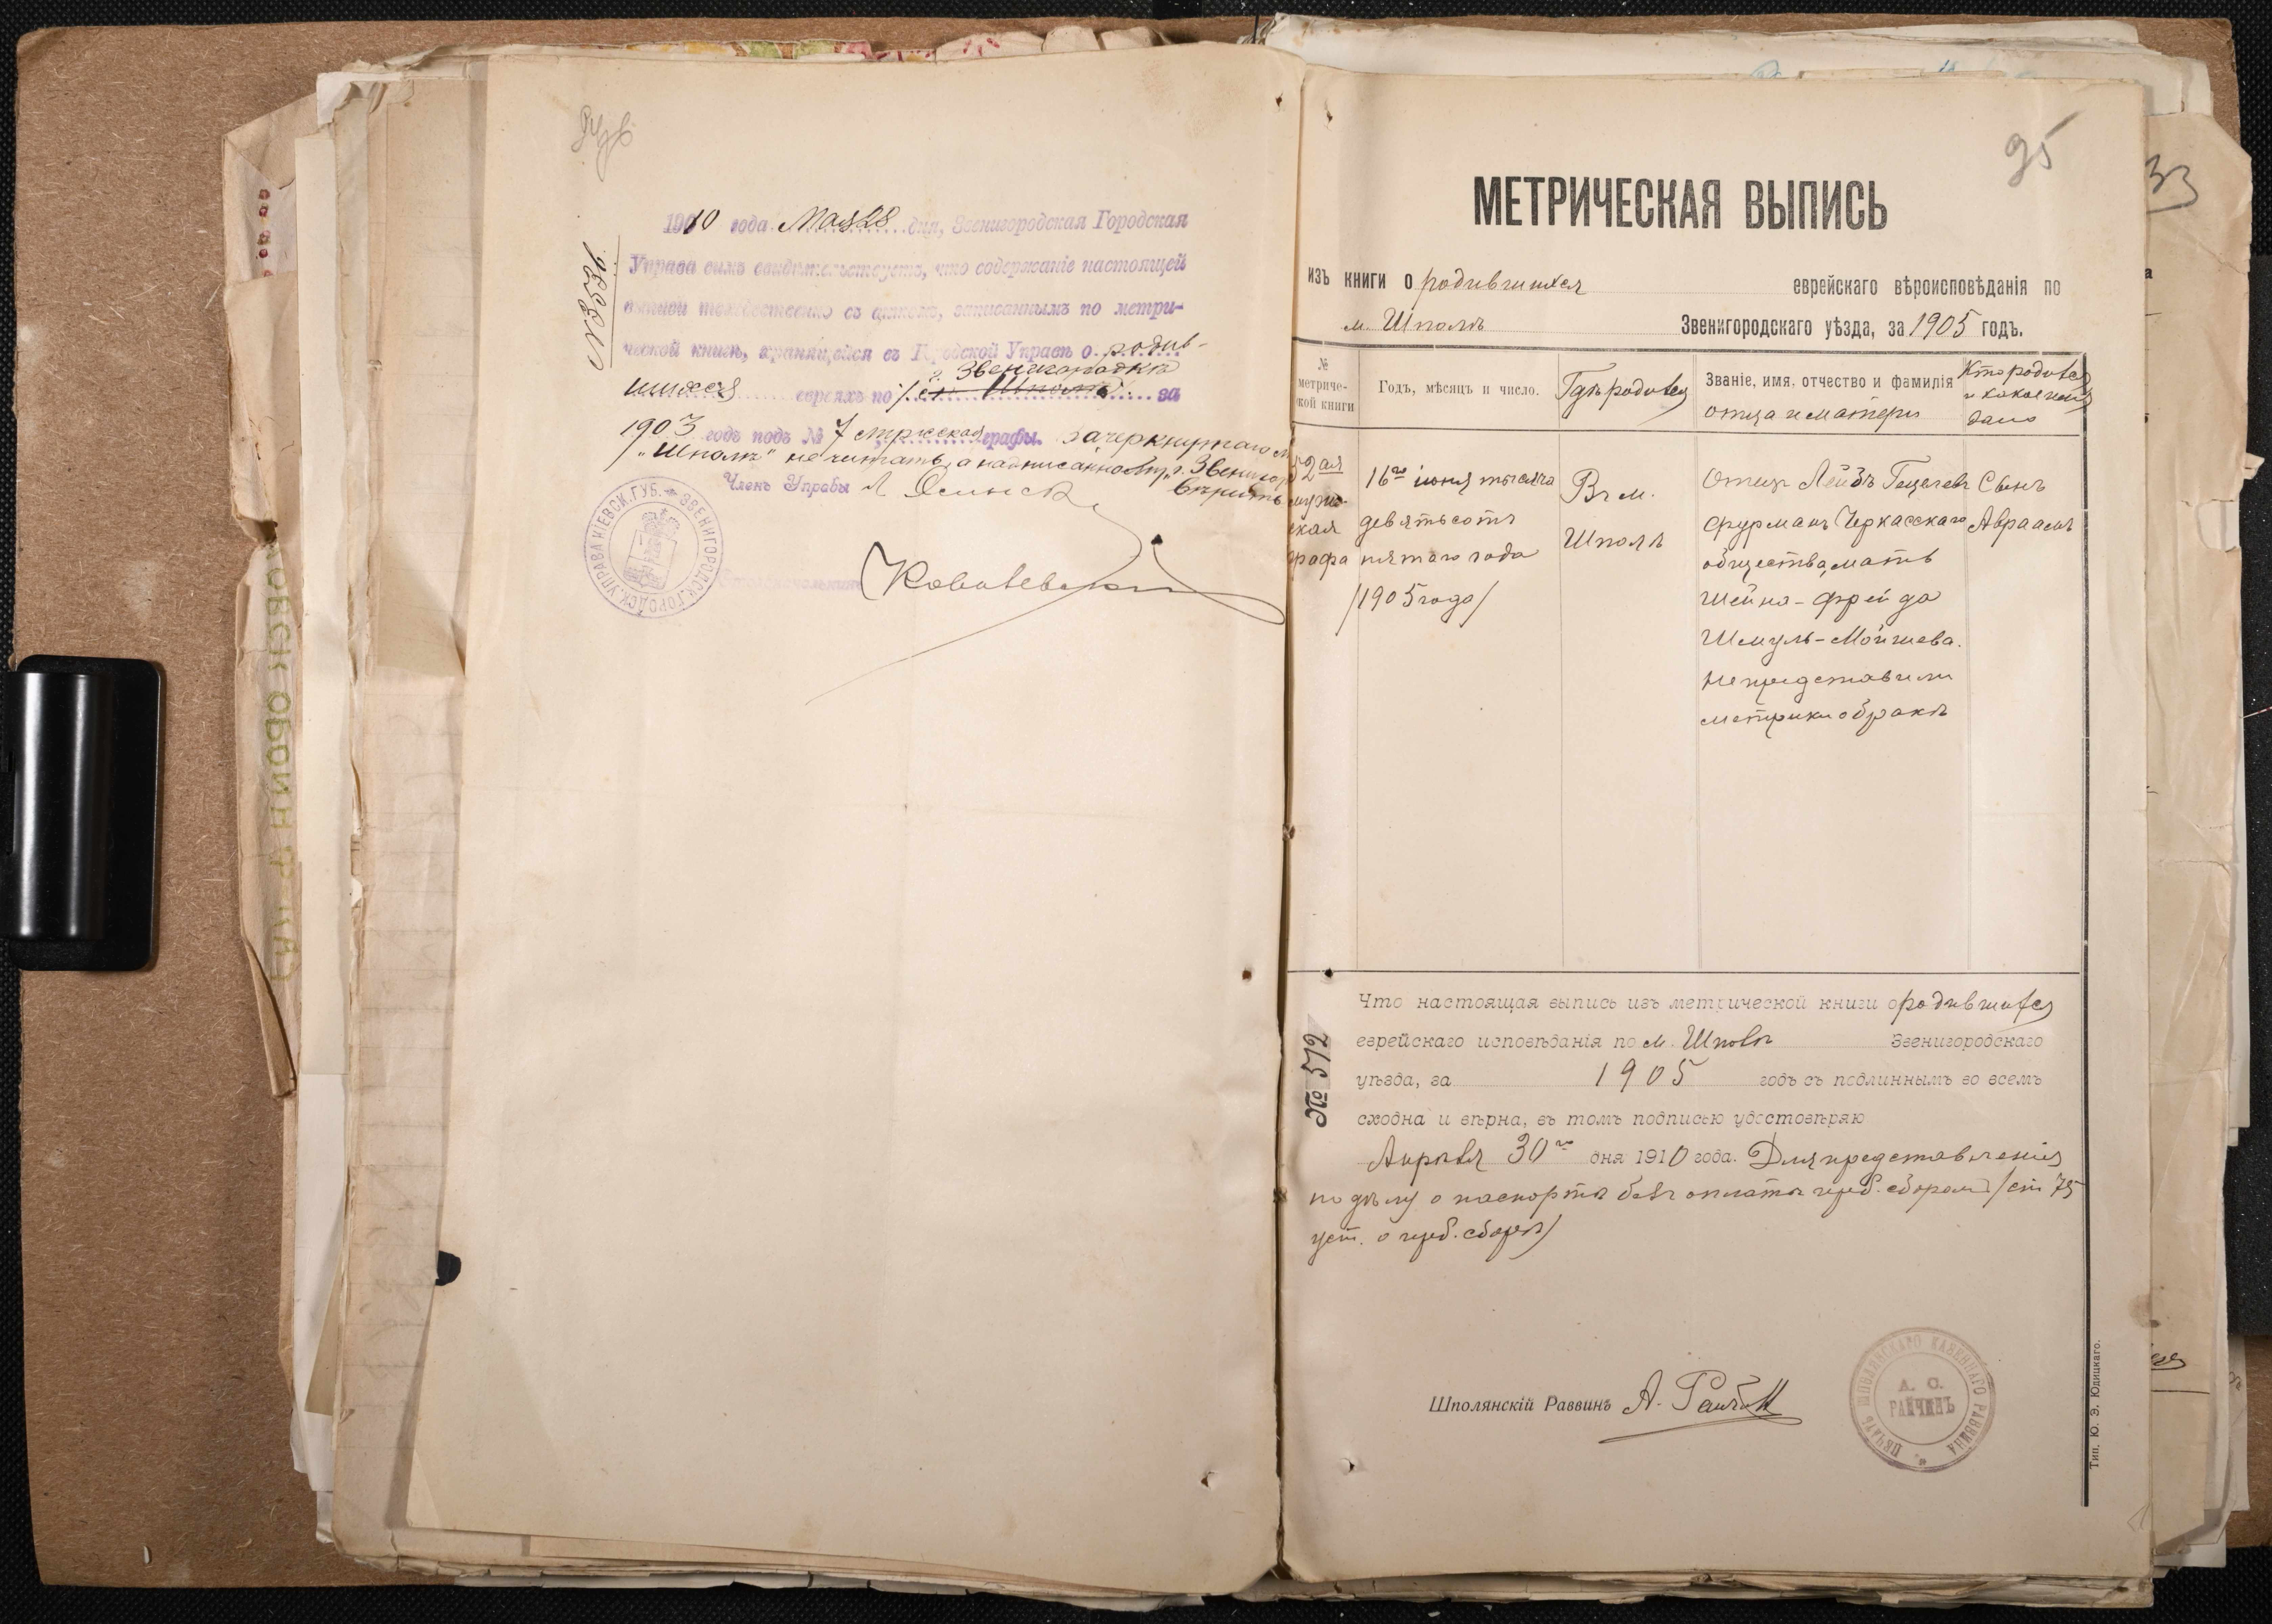 1910 года Мая 28 дня, Звенигородская Городская
Управа симъ свидѣтельствуетъ, что содержаніе настоящей
выписи тождественно съ актомъ, записаннымъ по метри-
ческой книгѣ, хранящейся въ Городской Управѣ о родив-
г. Звенигородкѣ
шихся евреяхъ по м. Шполѣ за
1903 годъ подъ № 7 мужская графы. Зачеркнутаго м.
"Шполѣ" не читать, а надписанному г. Звенигор
вѣрить
Членъ Управы
№ 3536
ЗВЕНИГОРОДСК. ГОРОДСК. УПРАВА КІЕВСК. ГУБ.
95
33
МЕТРИЧЕСКАЯ ВЫПИСЬ
изъ книги о родившихся еврейскаго вѣроисповѣданія по
м. Шполѣ Звенигородскаго уѣзда, за 1905 годъ.
№ метриче-ской книги
Годъ, мѣсяцъ и число.
Гдѣ родился
Званіе, имя, отчество и фамилія отца и матери
Кто родился и какое имя дано
52ая
мужс-
кая
графа
16го іюня тысяча
девятьсотъ
пятаго года
/1905 года/
Въ м.
Шполѣ
Отецъ Лейбъ Гецелевъ
Фурманъ Черкасскаго
общества, мать
Шейна-Фрейда
Шмуль-Мойшева.
Не представили
метрики о бракѣ
Сынъ
Авраамъ
Что настоящая выпись изъ метрической книги о родившихся
еврейскаго исповѣданія по м. Шполѣ Звенигородскаго
уѣзда, за 1905 годъ съ подлиннымъ во всемъ
сходна и вѣрна, въ томъ подписью удостовѣряю
Апрѣля 30го дня 1910 года. Для представленія
по дѣлу о паспортѣ безъ оплаты герб. сборомъ /ст 75
уст. о герб. сборѣ/
№ 572
Шполянскій Раввинъ А. Райчин
ПЕЧАТЬ ШПОЛЯНСКАГО КАЗЕННАГО РАВВИНА
А. С.
РАЙЧИНЪ
Тип. Ю. Э. Юдицкаго.